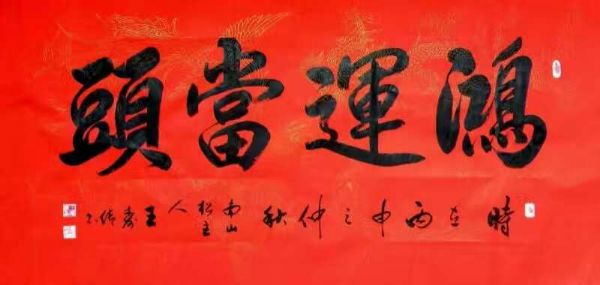 鴻運當頭
時在丙申之仲秋南山松主人王秀